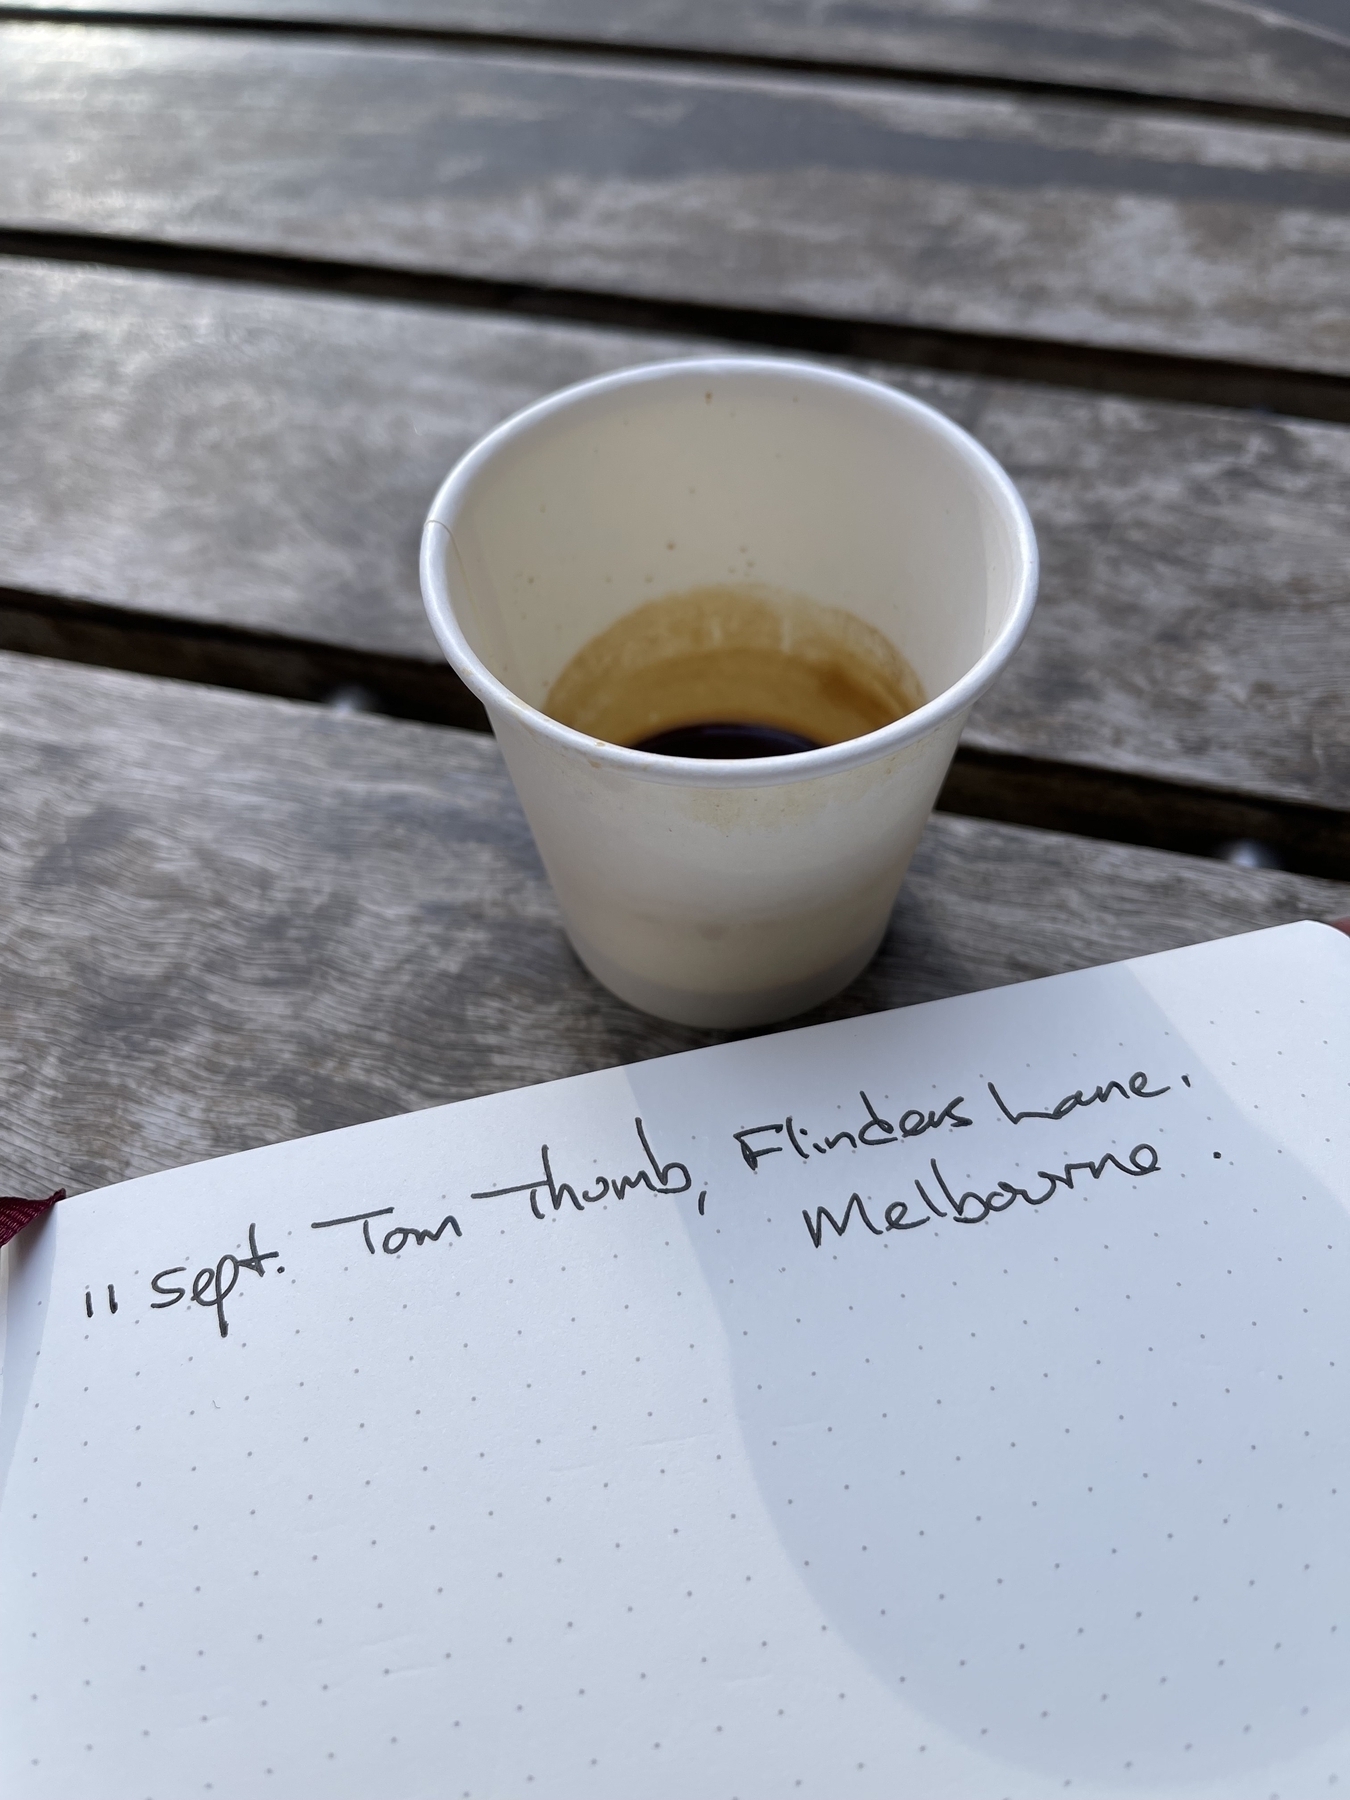 11 Sept. Tom Thumb, Flinders Lane.
Melbourne.